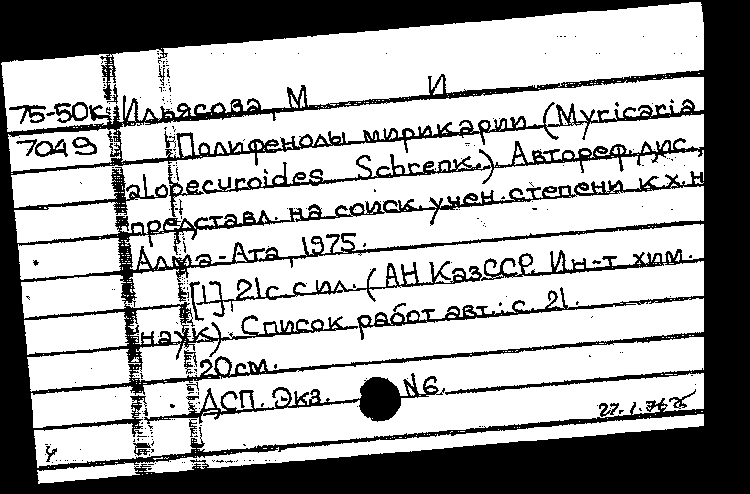 75-50к Ильясова, М И
7049 Полифенолы мирикарии (Myricaria
alopecuroides Schrenk.). Автореф. дис.,
представл. на соиск. учен. степени к.х.н
Алма-Ата, 1975.
[1], 21с. с ил. (АН КазССР. Ин-т хим.
наук). Список работ авт.: с. 21.
20см.
ДСП. Экз. N6.